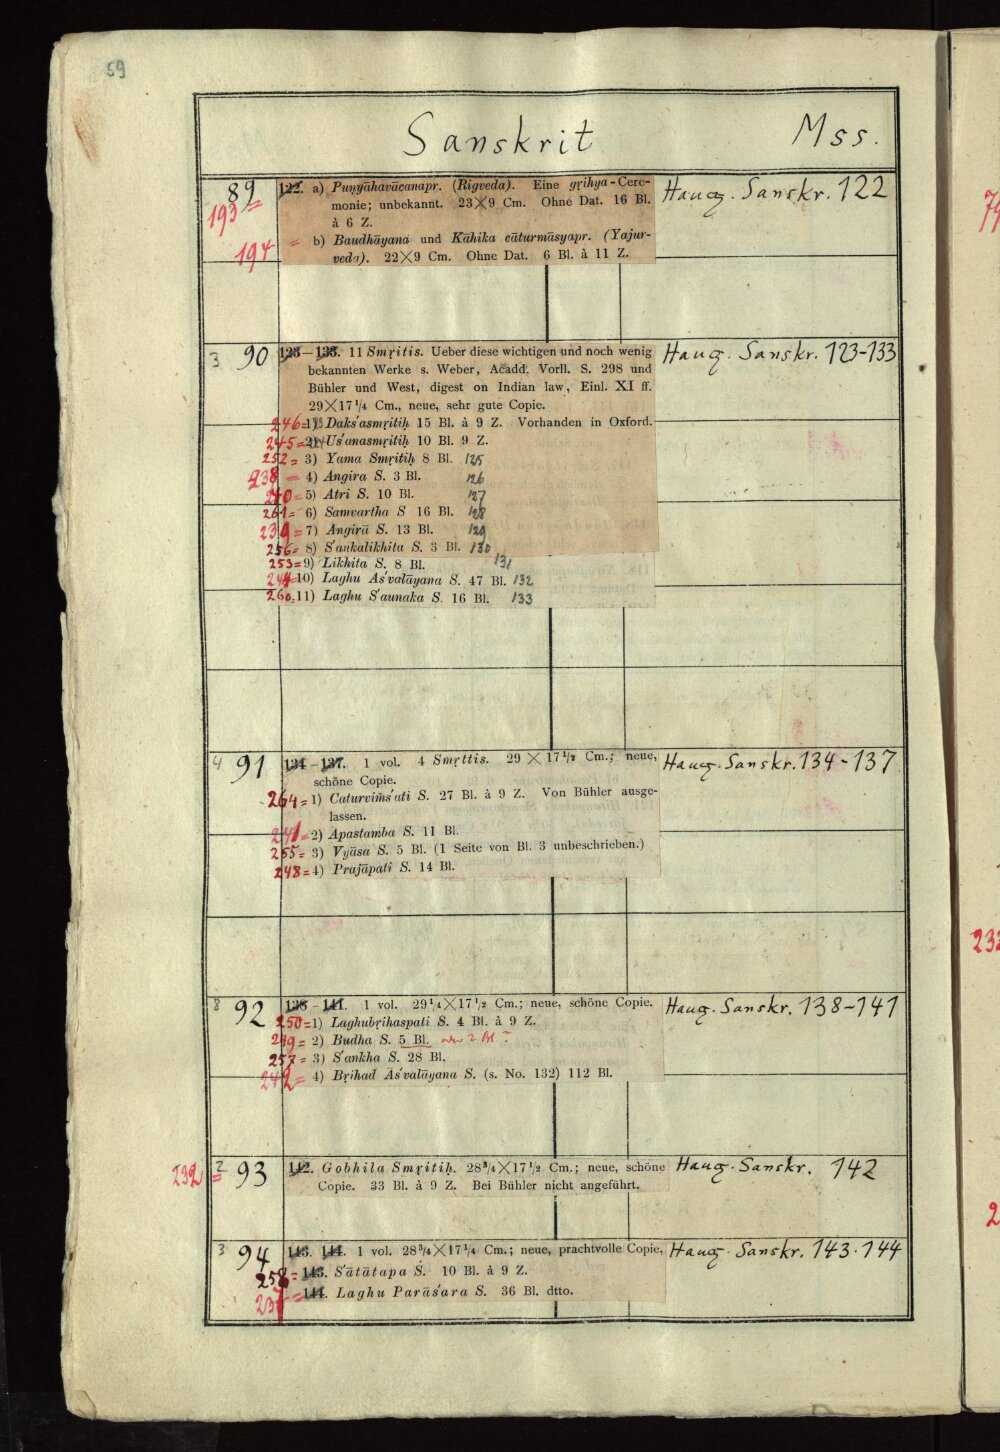 59
Sanskrit Mss.
89 122. a) Puṇyāhavācanapr. (Rigveda). Eine gṛihya-Cere- Haug. Sanskr. 122
193 = monie; unbekannt. 23×9 Cm. Ohne Dat. 16 Bl.
à 6 Z.
194 = b) Baudhāyana und Kāhika cāturmāsyapr. (Yajur-
veda). 22×9 Cm. Ohne Dat. 6 Bl. à 11 Z.
3 90 123–133. 11 Smṛitis. Ueber diese wichtigen und noch wenig Haug. Sanskr. 123-133
bekannten Werke s. Weber, Acadd. Vorll. S. 298 und
Bühler und West, digest on Indian law, Einl. XI ff.
29×17 1/4 Cm., neue, sehr gute Copie.
246 = 1) Daks'asmṛitiḥ 15 Bl. à 9 Z. Vorhanden in Oxford.
245 = 2) Us'anasmṛitiḥ 10 Bl. 9 Z.
252 = 3) Yama Smṛitiḥ 8 Bl. 125
238 = 4) Angira S. 3 Bl. 126
240 = 5) Atri S. 10 Bl. 127
261 = 6) Samvartha S 16 Bl. 128
239 = 7) Angirā S. 13 Bl. 129
256 = 8) S'ankalikhita S. 3 Bl. 130
253 = 9) Likhita S. 8 Bl. 131
244 10) Laghu As'valāyana S. 47 Bl. 132
260 = 11) Laghu S'aunaka S. 16 Bl. 133
4 91 134–137. 1 vol. 4 Smṛttis. 29 × 17 1/2 Cm.; neue, Haug. Sanskr. 134-137
schöne Copie.
264 = 1) Caturvim̃s'ati S. 27 Bl. à 9 Z. Von Bühler ausge-
lassen.
241 = 2) Apastamba S. 11 Bl.
255 = 3) Vyāsa S. 5 Bl. (1 Seite von Bl. 3 unbeschrieben.)
248 = 4) Prajāpati S. 14 Bl.
8 92 138–141. 1 vol. 29 1/4×17 1/2 Cm.; neue, schöne Copie. Haug. Sanskr. 138-141
250 = 1) Laghubṛihaspati S. 4 Bl. à 9 Z.
249 = 2) Budha S. 5 Bl. 2 Bl ?
257 = 3) S'ankha S. 28 Bl.
242 = 4) Bṛihad As'valāyana S. (s. No. 132) 112 Bl.
232 = 2 93 142. Gobhila Smṛitiḥ. 28 3/4×17 1/2 Cm.; neue, schöne Haug. Sanskr. 142
Copie. 33 Bl. à 9 Z. Bei Bühler nicht angeführt.
3 94 143. 144. 1 vol. 28 3/4×17 1/4 Cm.; neue, prachtvolle Copie. Haug. Sanskr. 143. 144
258 = 143. S'ātātapa S. 10 Bl. à 9 Z.
237 = 144. Laghu Parās'ara S. 36 Bl. dtto.